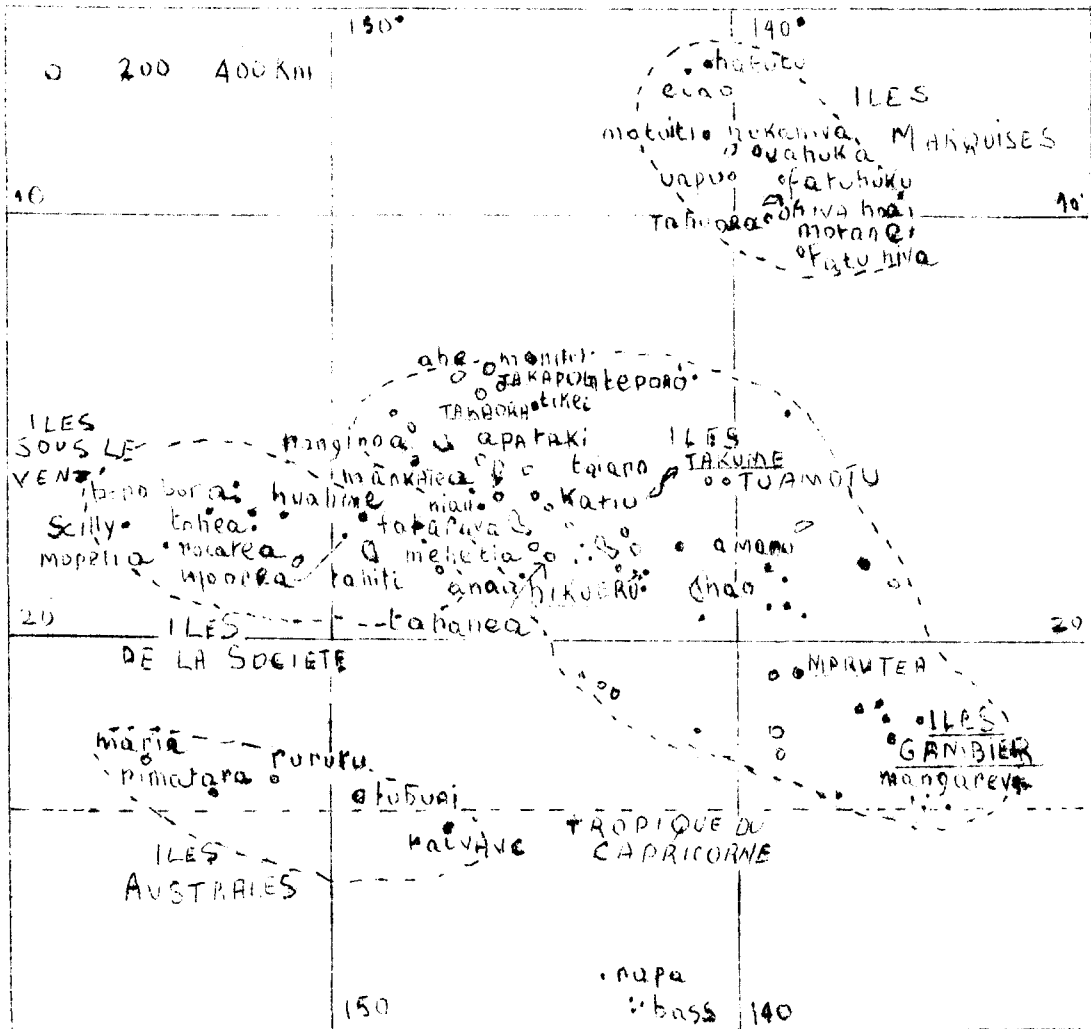 150°
140°
0 200 400 Km
hatutu
eiao
ILES
MARQUISES
motuiti
nukahiva
vahuka
uapuo
fatuhuku
10
10°
Tahuara
HIVA hoai
motane
fatu hiva
ahe maniti
TAKAPOTA tepoto
TAKAORA tikei
ILES
SOUS LE
VENT
ranginoa
apataki
ILES
TAKUME
TUAMOTU
mānkatea
taiaro
bora borai
huahine
niau
Katiu
Scilly
tahea
fakarava
mopelia
raiatea
mehetia
amanu
moorea
tahiti
anaa
HIKUERU
hao
tahanea
20
20
ILES
DE LA SOCIETE
MARUTEA
ILES
GAMBIER
mangareva
māriā
rimatara
rurutu
tubuai
raivave
TROPIQUE DU
CAPRICORNE
ILES
AUSTRALES
rapa
bass
150
140